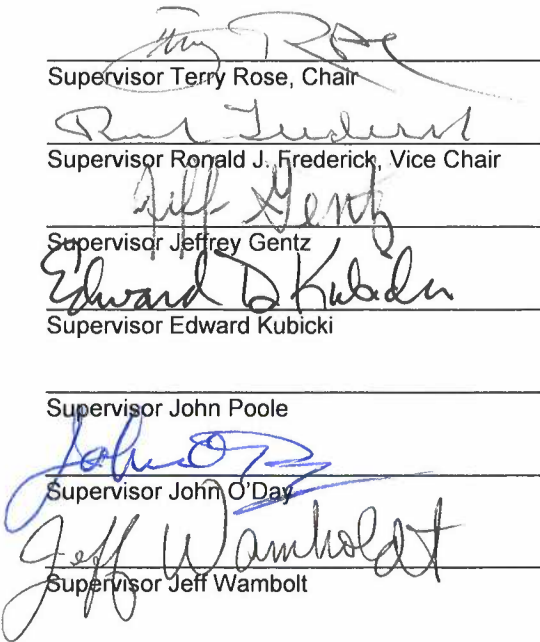 Terry Rose
Supervisor Terry Rose, Chair
Supervisor Ronald J. Frederick, Vice Chair
Jeff Gentz
Supervisor Jeffrey Gentz
Edward D Kubicki
Supervisor Edward Kubicki
Supervisor John Poole
John O'D
Supervisor John O'Day
Jeff Wamboldt
Supervisor Jeff Wambolt